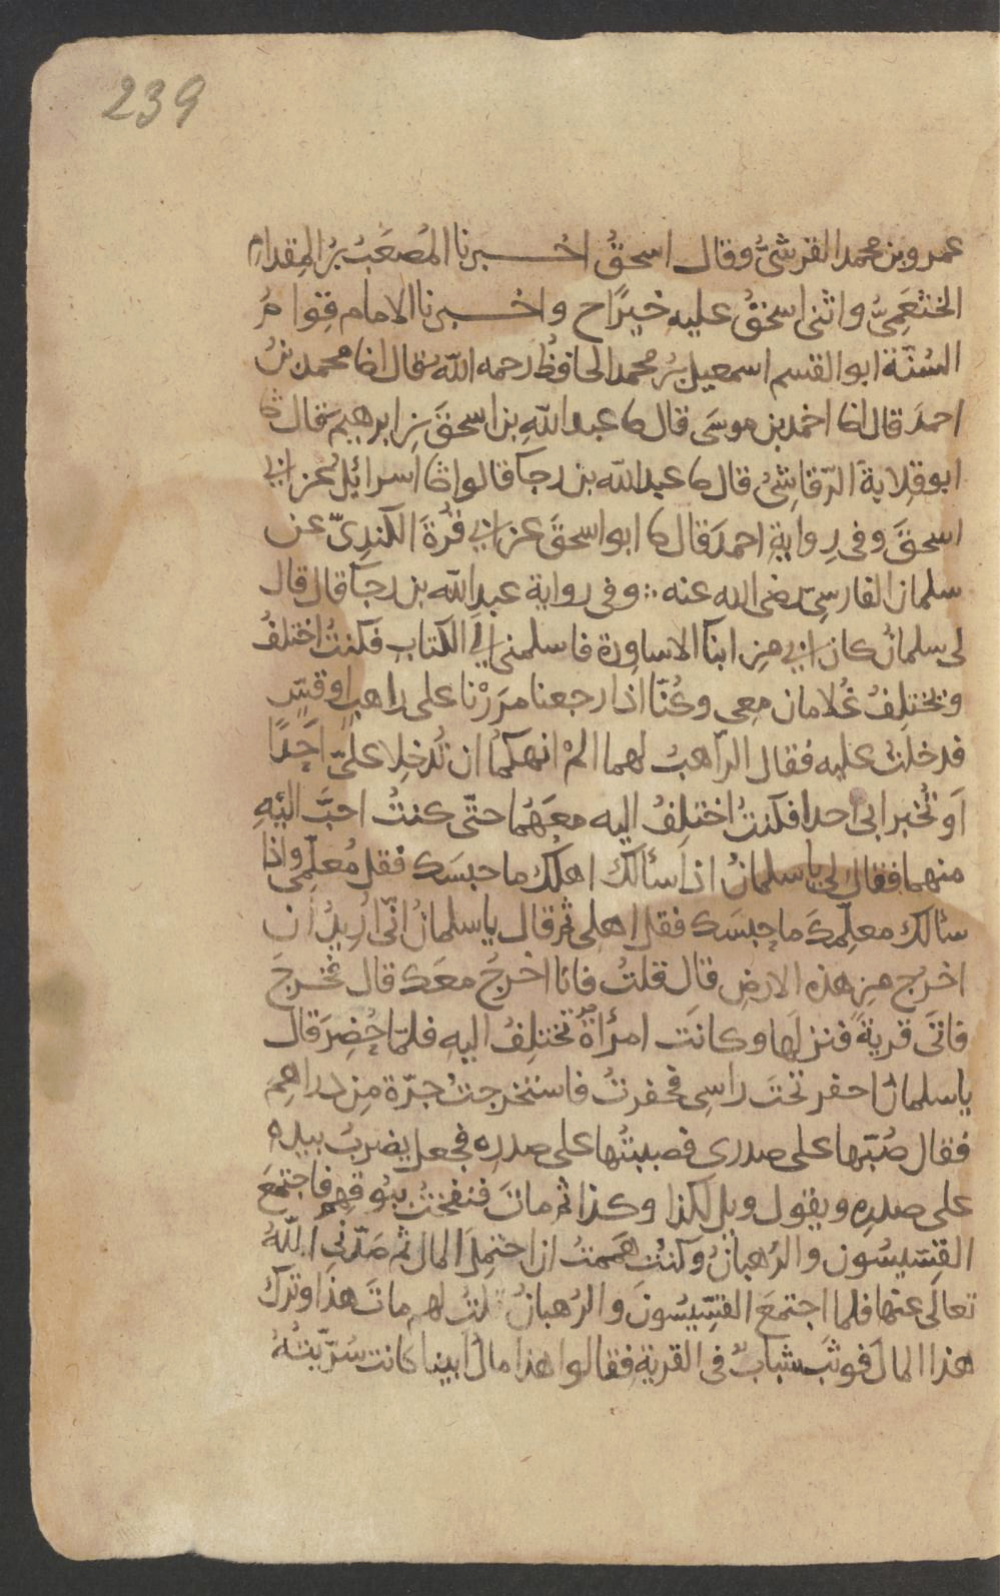 239
عمرو بن محمد القرشىّ وقال اسحقُ اخـــبرنا المُصعَبُ بنُ المِقدامِ
الخثعَمِىُّ واثنى اسحقُ عليهِ خيرًا ح واخـــبرنا الامام قِوامُ
السُنّة ابو القسم اسمعيل بنُ محمد الحافظُ رحمه اللّهُ قال انا محمد بنُ
احمدَ قال انا احمد بن موسَى قال نا عبد اللّهِ بن اسحقَ بنِ ابرهيمَ قال نا
ابو قِلابةَ الرّقاشِىُ قال نا عبد اللّه بن رجآ قالوا نا اسرائيلُ عن ابى
اسحقَ وفى رِوايةِ احمدَ قال نا ابو اسحقَ عن ابى قُرّةَ الكندِىّ عن
سلمان الفارسِىّ رضى الله عنه ∴ وفى رواية عبدِ اللّه بن رجآ قال قال
لى سلمانُ كان ابى مِن ابنآ الاساوِرة فاسلمنى الى الكتابِ فكنتُ اختلفُ
ويختلِفُ غُلامان معِى وكُنّا اذا رجعنا مرَرْنا على راهبٍ او قسٍّ
فدخلتُ عليه فقال الرّاهبُ لهما المْ انهكُما ان تُدخِلا علىّ احَدًا
او تُخبرا بى احدا فكنتُ اختلِفُ اليه معَهُما حتّى كنتُ احبَّ اليْهِ
منهما فقال لى يا سلمانُ اذا سئالك اهلُك ما حبسَك فقل مُعلّمى واذا
سئالك معلّمكَ ما حبسَك فقل اهلى ثم قال يا سلمانُ انّى اُرِيدُ ان
اخرُج مِن هذه الارضِ قال قلتُ فانا اخرجُ معَك قال فخرجَ
فاتَى قريةً فنزلَها وكانَت امرُاةٌ تختلِفُ اليهِ فلمّا حُضِرَ قال
يا سلمانُ احفر تحتَ راسِى فحفرتُ فاستخرجتُ جرّة مِن دراهِم
فقال صُبّها على صدرى فصببتُها على صدرِه فجعل يضربُ بيدِه
على صدرِه ويقول ويل لكذا وكذا ثم ماتَ فنفختُ ببُوقهِم فاجتمعَ
القِسّيسُون والرُهبانُ وكنتُ هَممتُ ان احتمِلَ المال ثم صَدّنى اللّهُ
تعالَى عنها فلما اجتمعَ القِسّيسُونَ والرُهبانُ قلتُ لهم ماتَ هذا وترَك
هذا المالَ فوثَب شبابٌ فى القريةِ فقالوا هذا مالُ ابينا كانت سُرّيّتُهُ